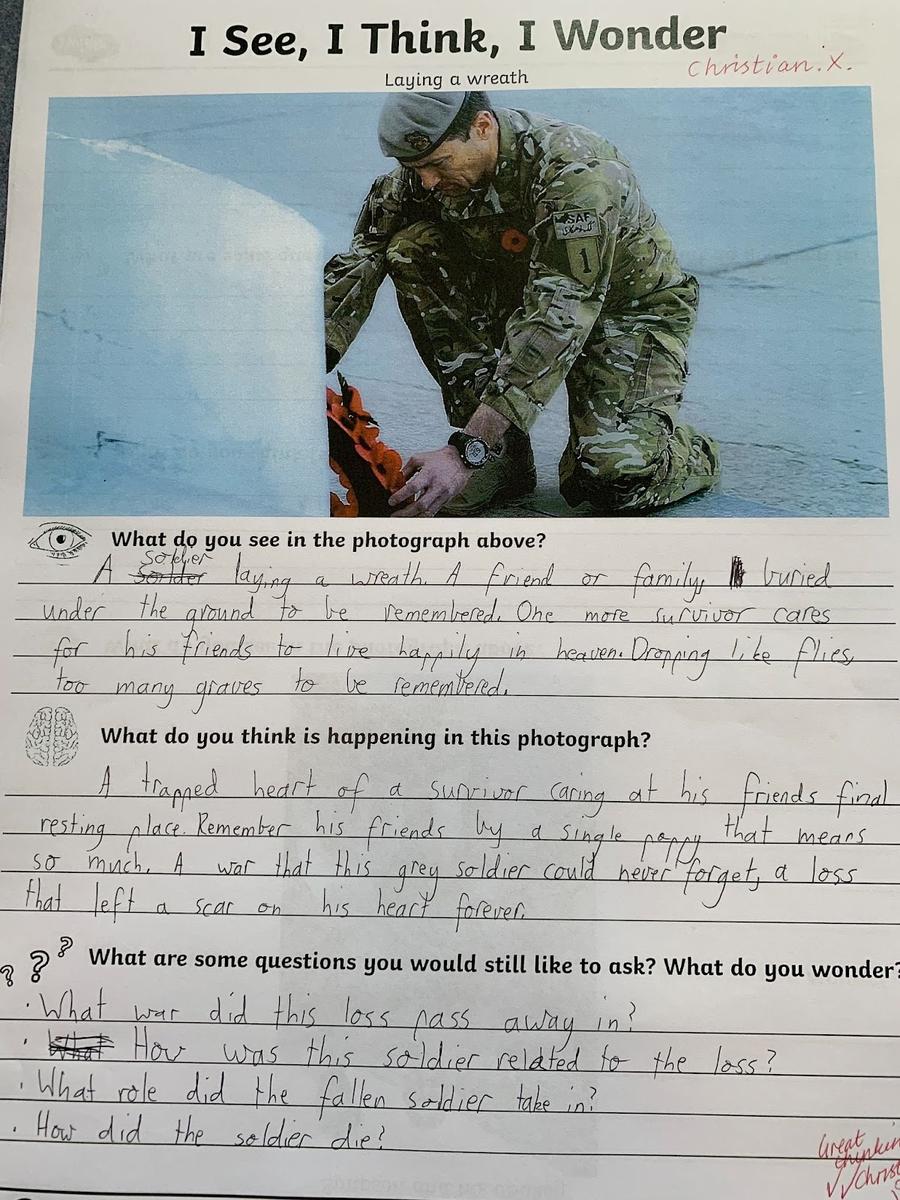 I See, I Think, I Wonder
Christian.X.
Laying a wreath
ISAF
1
What do you see in the photograph above?
soldier
A laying a wreath. A friend or family, buried
under the ground to be remembered. One more survivor cares
for his friends to live happily in heaven. Dropping like flies,
too many graves to be remembered.
What do you think is happening in this photograph?
A trapped heart of a survivor caring at his friends final
resting place. Remember his friends by a single poppy that means
so much. A war that this grey soldier could never forget, a loss
that left a scar on his heart forever.
What are some questions you would still like to ask? What do you wonder?
· What war did this loss pass away in?
· What How was this soldier related to the loss?
· What role did the fallen soldier take in?
· How did the soldier die?
Great
thinkin
√√ Christ